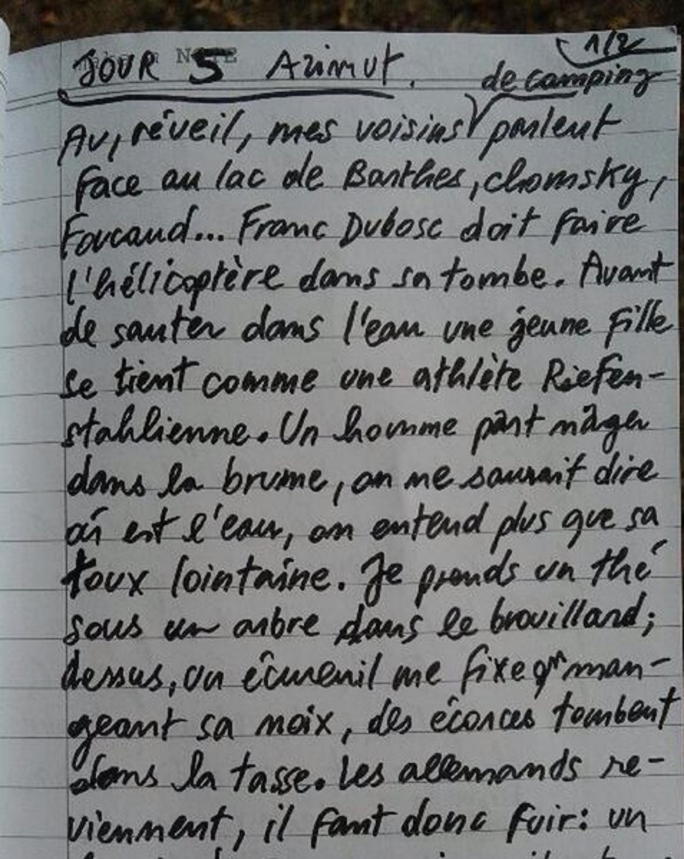 JOUR 5 Azimut. 1/2
de camping
Au, réveil, mes voisins parlent
face au lac de Barthes, chomsky,
Foucaud... Franc Dubosc doit faire
l'hélicoptère dans sa tombe. Avant
de sauter dans l'eau une jeune fille
se tient comme une athlète Riefen-
stahlienne. Un homme part nager
dans la brume, on ne saurait dire
où est l'eau, on entend plus que sa
toux lointaine. Je prends un thé
sous un arbre dans le brouillard;
dessus, un écureuil me fixe en man-
geant sa noix, des écorces tombent
dans la tasse. Les allemands re-
viennent, il faut donc fuir: un